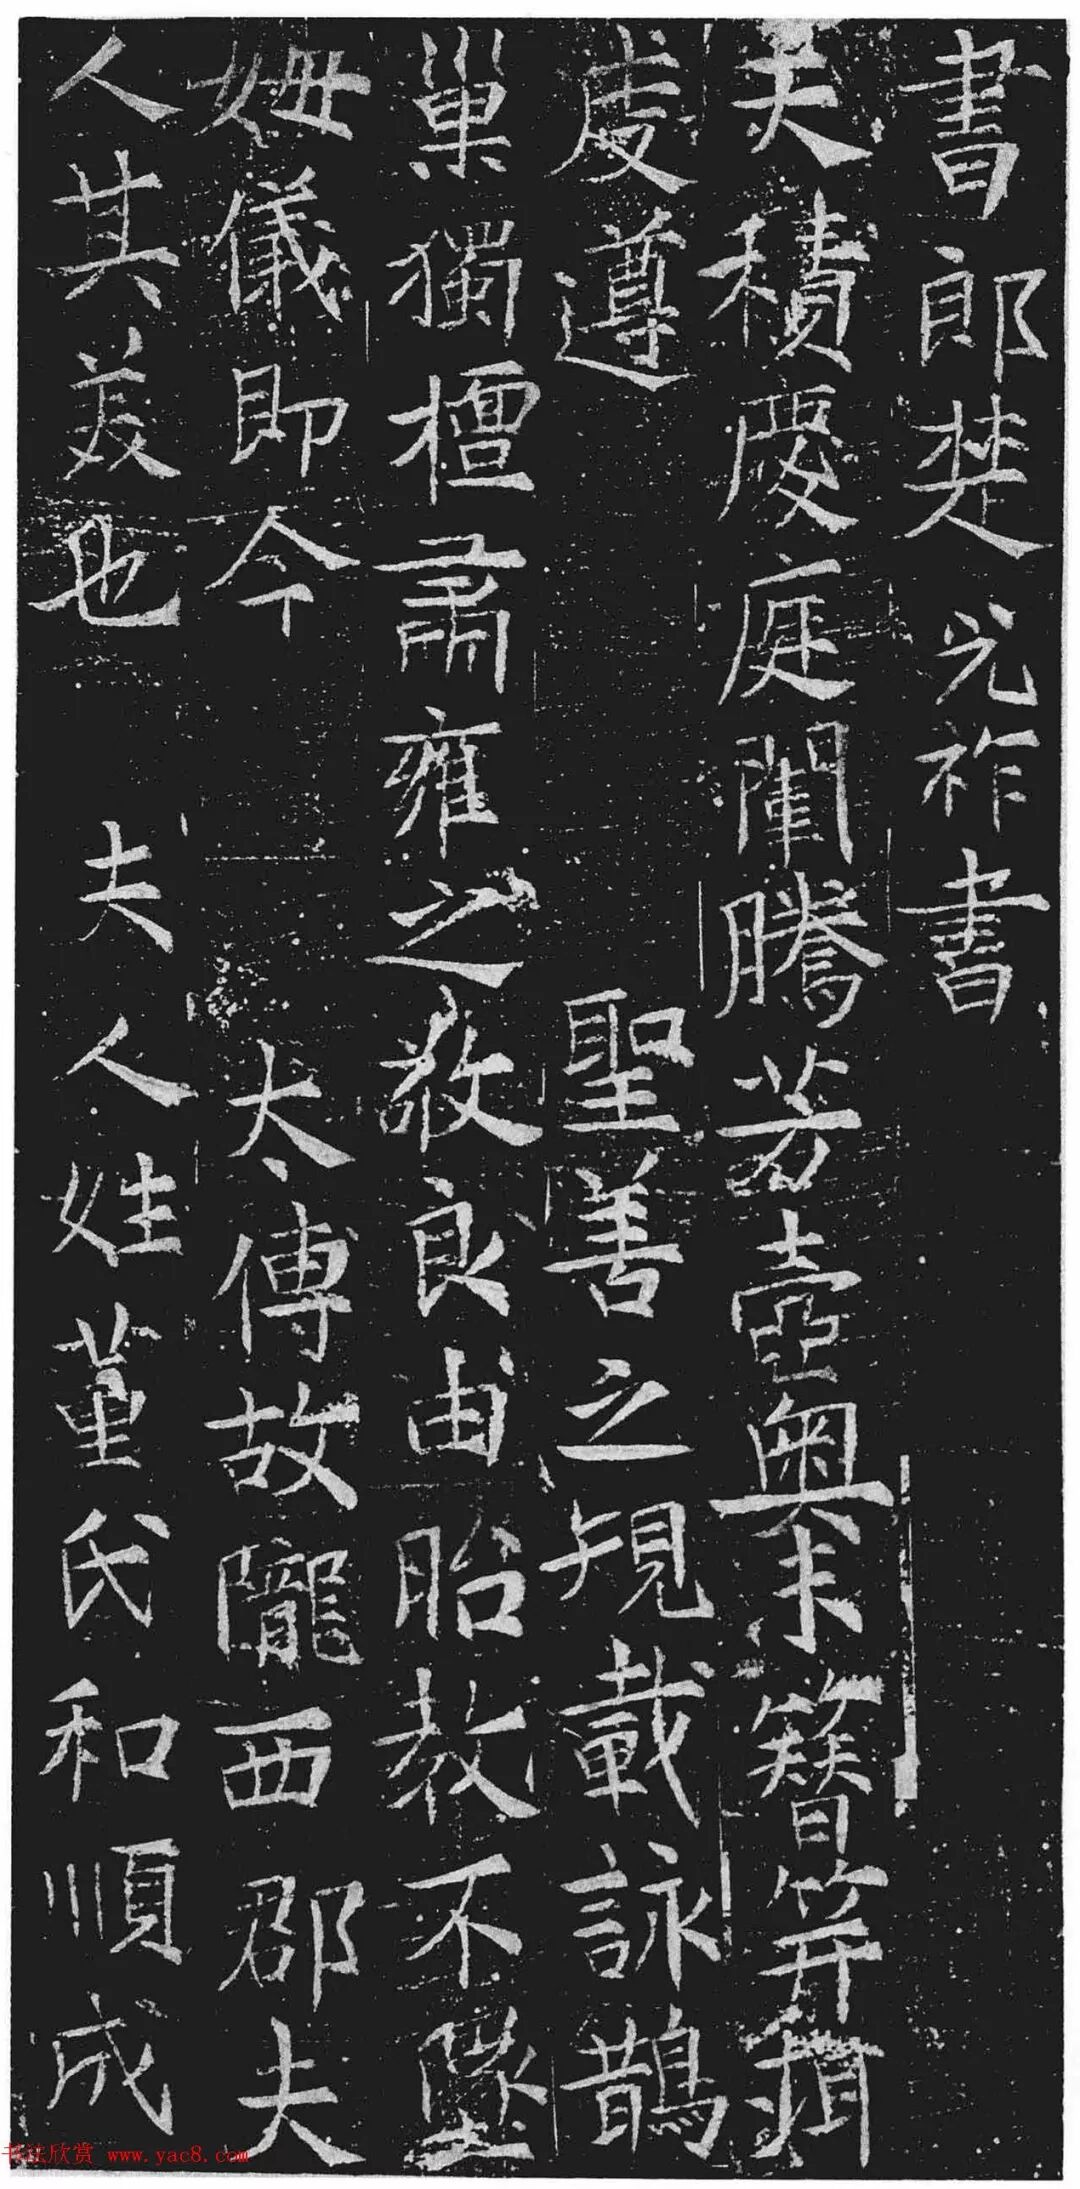 書郎楚光祚書
夫積慶庭闈騰芳壼奧木簪笄猶
虔遵　聖善之規載詠鵲
巢獨檀肅雍之敬良由胎教不墜
姆儀即今　太傅故隴西郡夫
人其美也　夫人姓董氏和順成
书法欣赏 www.yac8.com